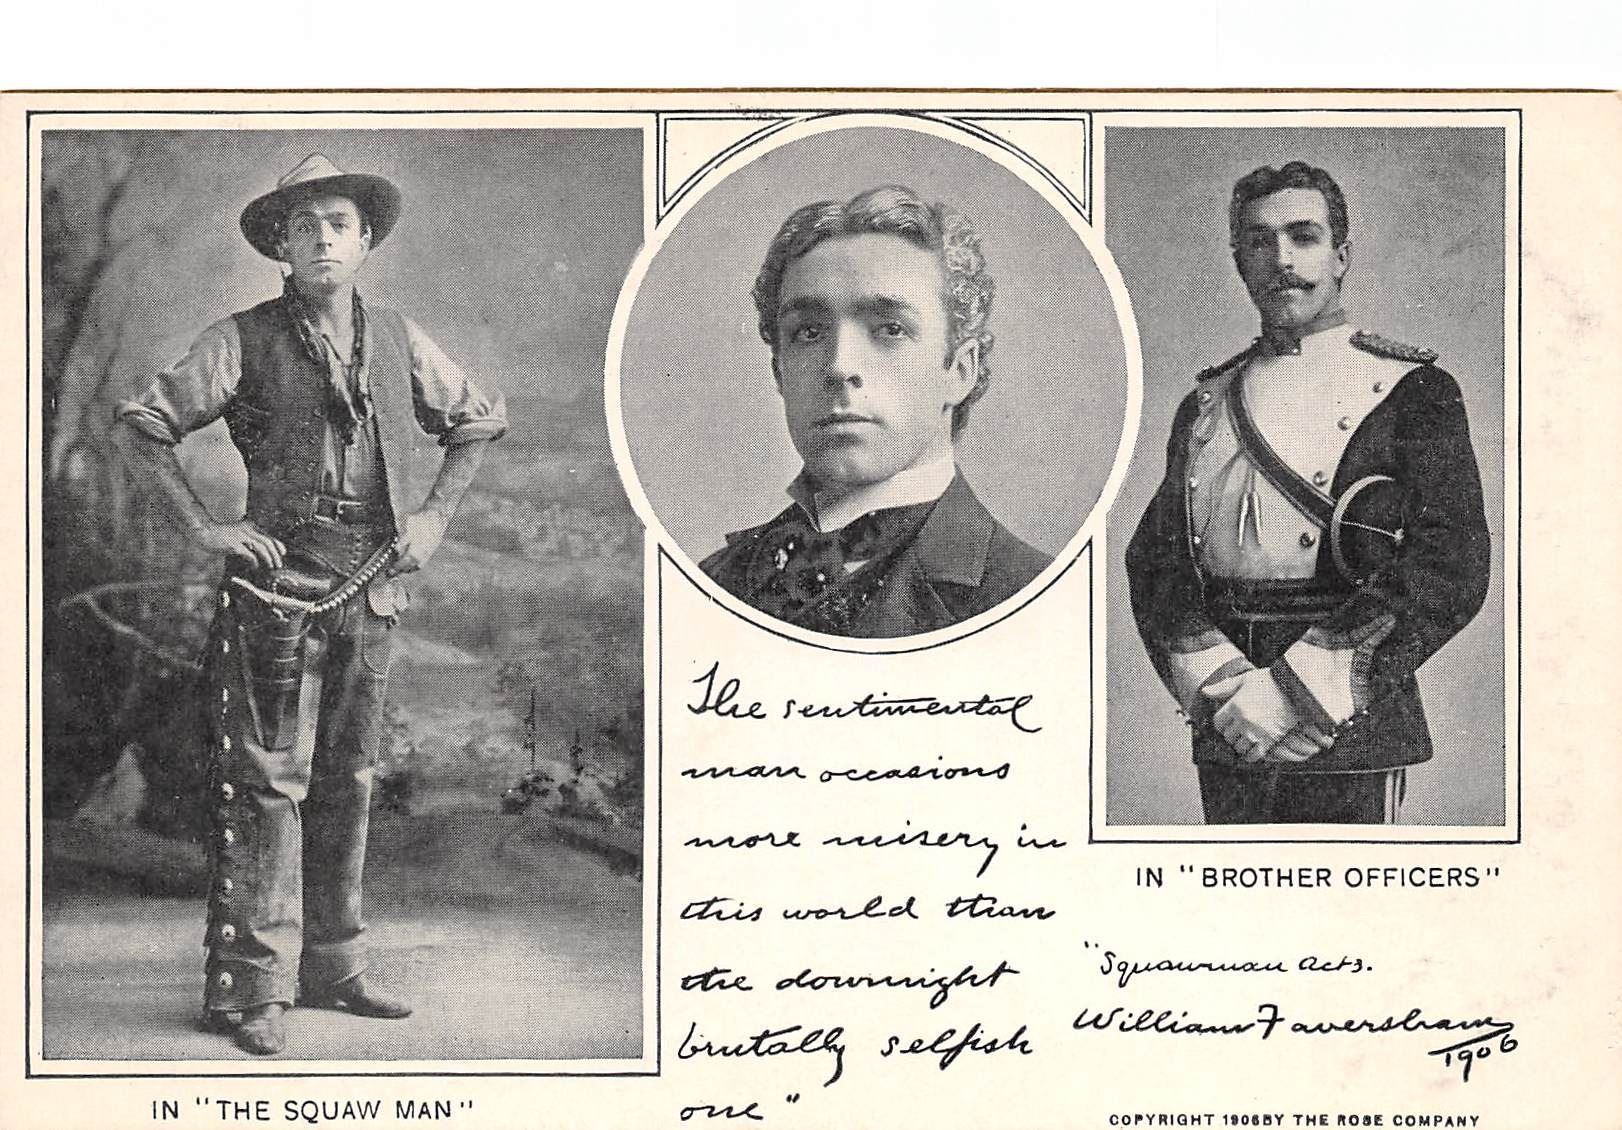 The sentimental
man occasions
more misery in
this world than
the downright
brutally selfish
one"
IN "THE SQUAW MAN"
IN "BROTHER OFFICERS"
"Squawman Act 3.
William Faversham
1906
COPYRIGHT 1906 BY THE ROSE COMPANY